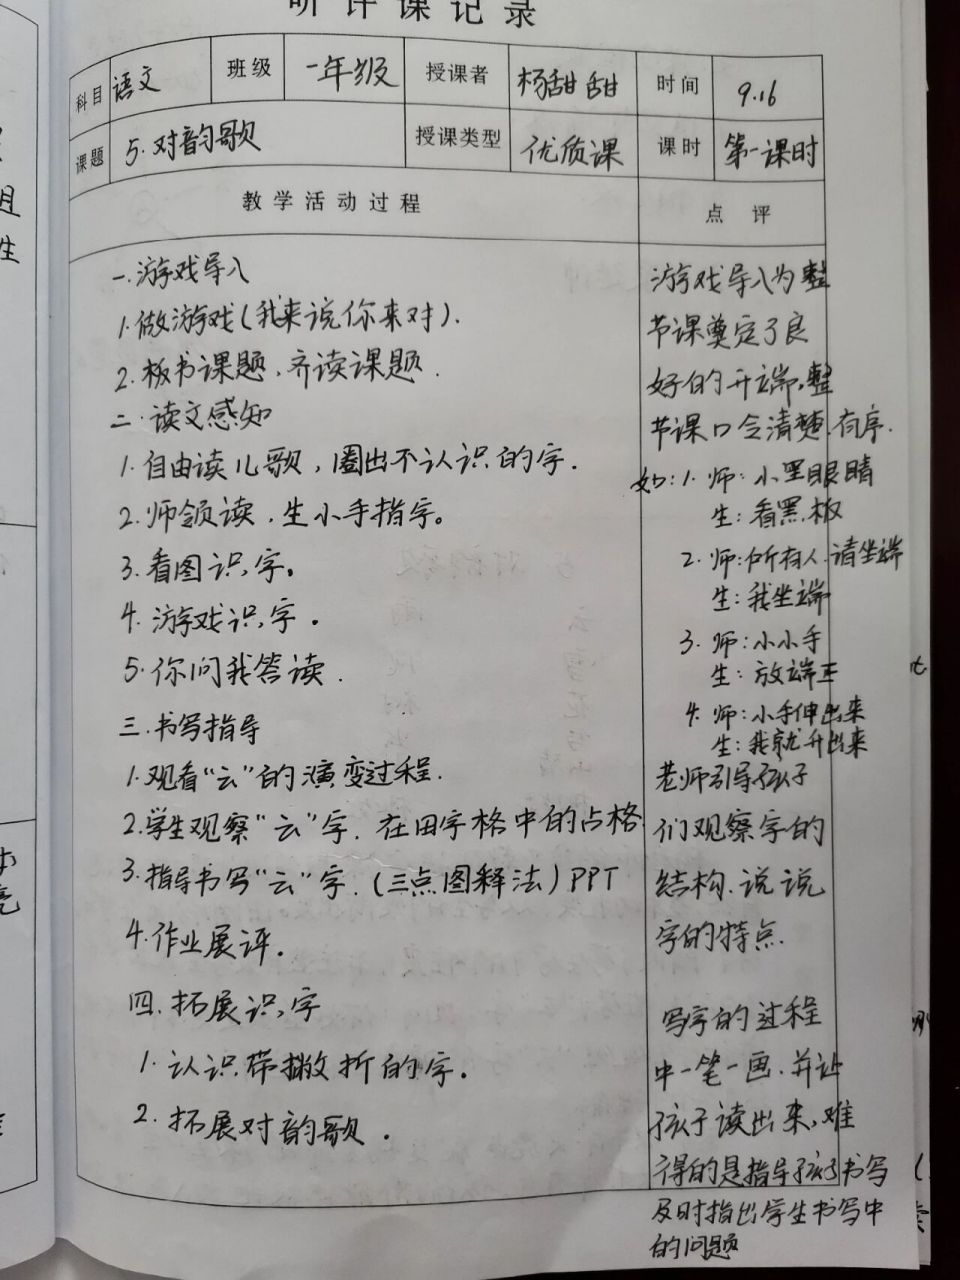 听评课记录
科目 语文 班级 一年级 授课者 杨甜甜 时间 9.16
课题 5.对韵歌 授课类型 优质课 课时 第一课时
教学活动过程 点评
一.游戏导入
1.做游戏(我来说你来对).
2.板书课题.齐读课题.
二.读文感知
1.自由读儿歌,圈出不认识的字.
2.师领读.生小手指字。
3.看图识字。
4.游戏识字.
5.你问我答读.
三.书写指导
1.观看"云"的演变过程.
2.学生观察"云"字.在田字格中的占格.
3.指导书写"云"字.(三点图释法)PPT
4.作业展评.
四.拓展识字
1.认识带撇折的字.
2.拓展对韵歌.
游戏导入为整
节课奠定了良
好的开端,整
节课口令清楚.有序.
如:1.师:小黑眼睛
生:看黑板
2.师:所有人.请坐端
生:我坐端
3.师:小小手
生:放端正
4.师:小手伸出来
生:我就开出来
老师引导孩子
们观察字的
结构.说说
字的特点.
写字的过程
中一笔一画.并让
孩子读出来,难
得的是指导孩子书写
及时指出学生书写中
的问题